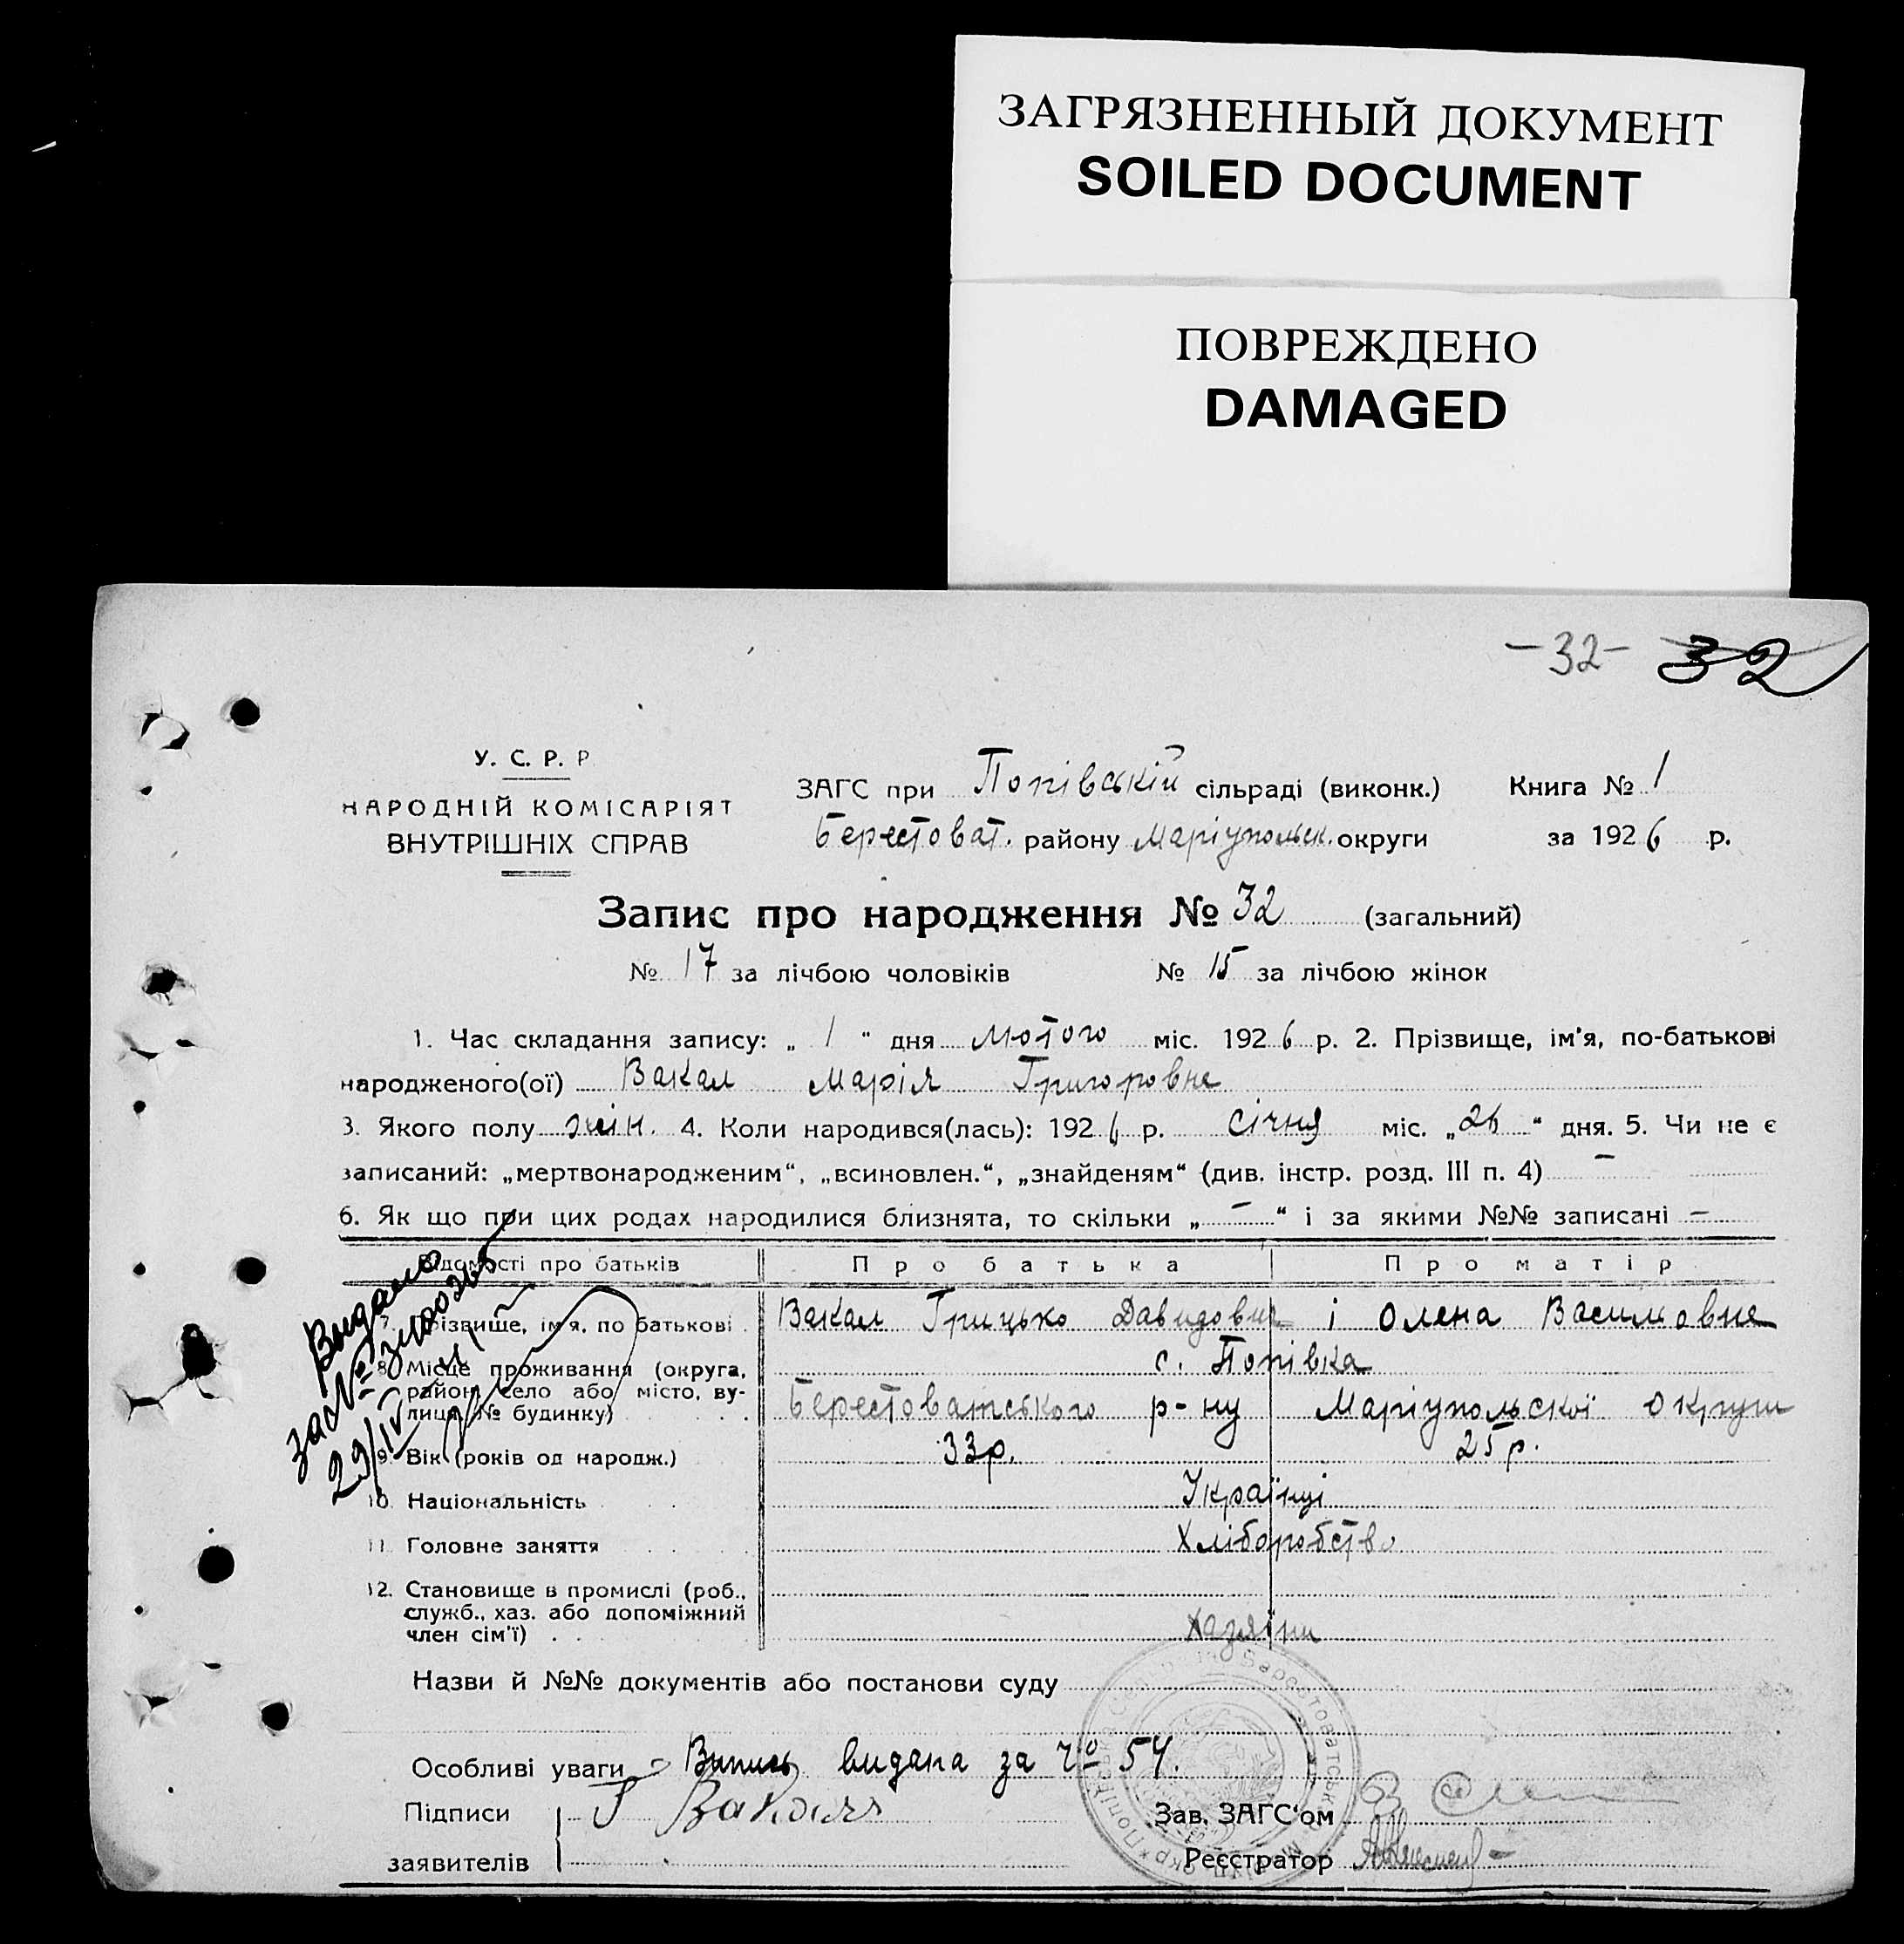 ЗАГРЯЗНЕННЫЙ ДОКУМЕНТ
SOILED DOCUMENT
ПОВРЕЖДЕНО
DAMAGED
-32- 32
У. С. Р. Р
НАРОДНІЙ КОМІСАРІЯТ
ВНУТРІШНІХ СПРАВ
ЗАГС при Попівській сільраді (виконк.) Книга № 1
Берестоват. району Маріупольск. округи за 1926 р.
Запис про народження № 32 (загальний)
№ 17 за лічбою чоловіків № 15 за лічбою жінок
1. Час складання запису: „ 1 “ дня Лютого міс. 1926 р. 2. Прізвище, ім'я, по-батькові
народженого(ої) Вакал Марія Григоровна
3. Якого полу жін. 4. Коли народився(лась): 1926 р. Січня міс. „26“ дня. 5. Чи не є
записаний: „мертвонародженим“, „всиновлен.“, „знайденям“ (див. інстр. розд. III п. 4) –
6. Як що при цих родах народилися близнята, то скільки „ – “ і за якими №№ записані –
Відомості про батьків Про батька Про матір
7. Прізвище, ім'я, по батькові Вакал Грицько Давидович і Олена Василовна
8. Місце проживання (округа, с. Попівка
район, село або місто, ву-
лиця, № будинку) Берестоватського р-ну Маріупольскої округи
9. Вік (років од народж.) 33р. 25р.
10. Національність Українці
11. Головне заняття Хліборобство
12. Становище в промислі (роб.,
служб., хаз. або допоміжний
член сім'ї) Хазяїни
Видано
за №
29/IV
Назви й №№ документів або постанови суду
Особливі уваги – Випись видана за № 54.
Підписи Вакал
Зав. ЗАГС'ом
заявителів
Реєстратор